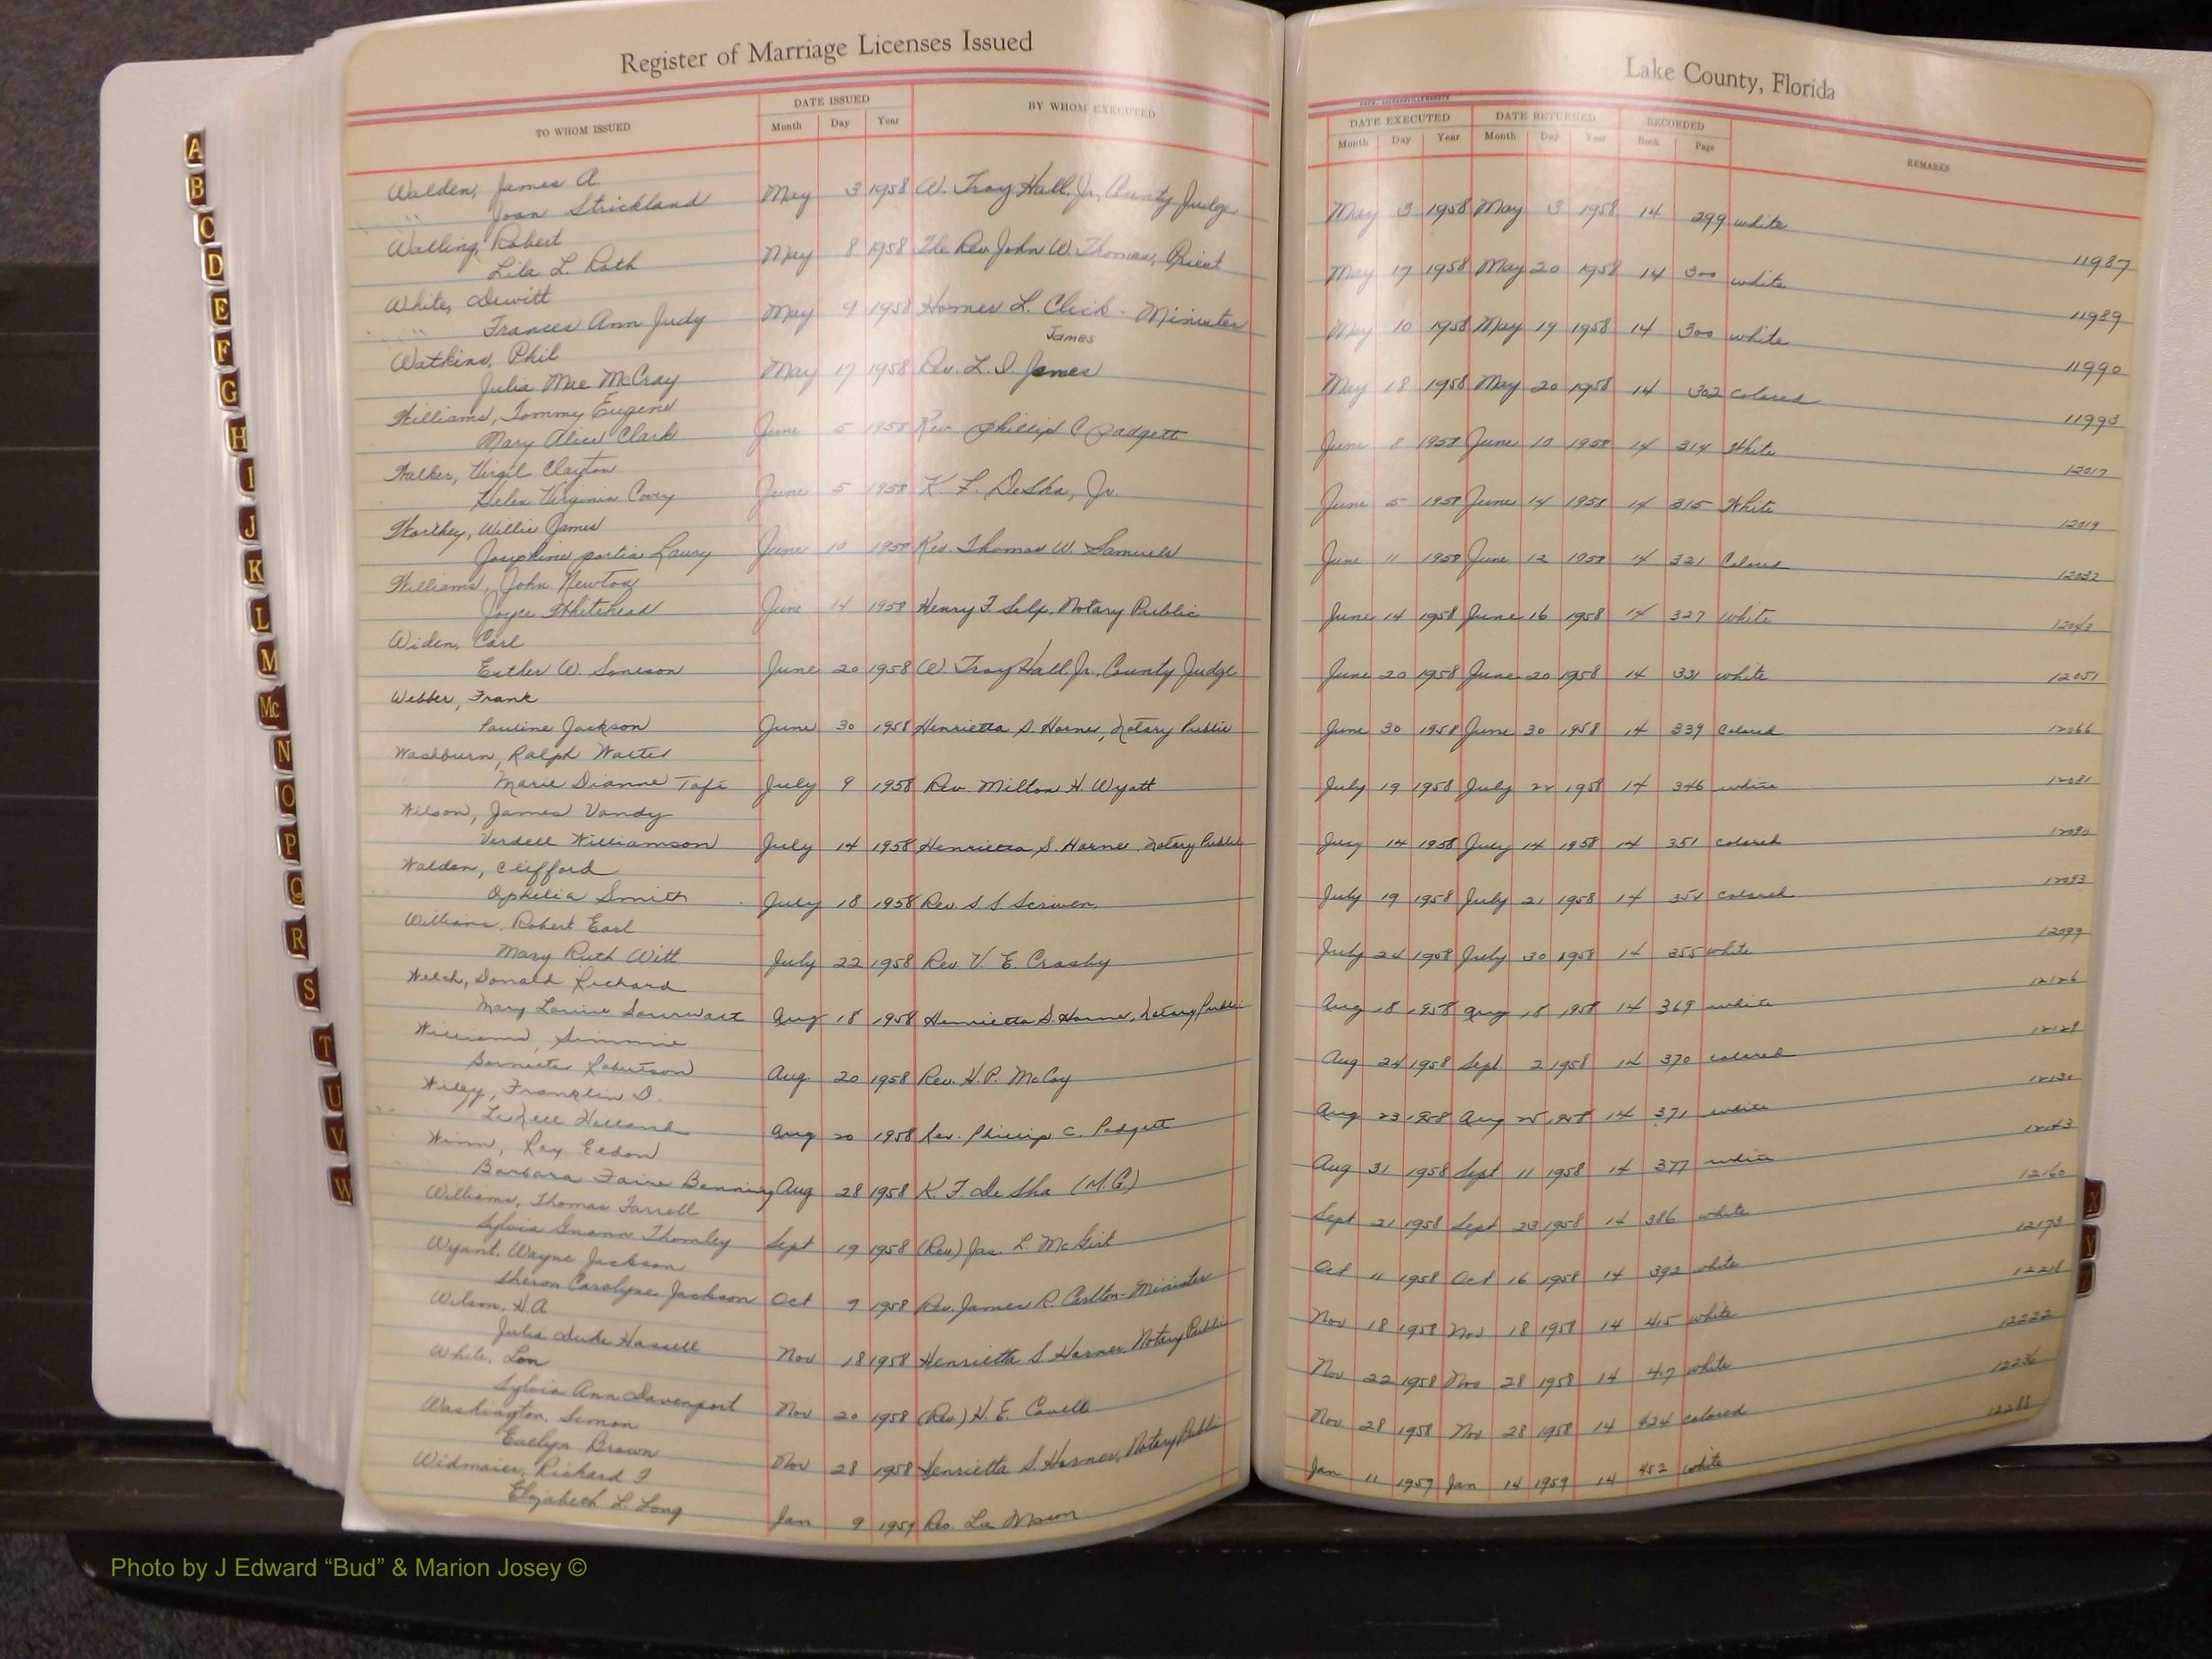 Register of Marriage Licenses Issued
Lake County, Florida
TO WHOM ISSUED
DATE ISSUED
Month Day Year
BY WHOM EXECUTED
DATE EXECUTED
Month Day Year
DATE RETURNED
Month Day Year
RECORDED
Book Page
REMARKS
Walden, James A.
" Joan Strickland May 3 1958 W. Troy Hall, Jr, County Judge May 3 1958 May 3 1958 14 299 white
11987
Walling, Robert
Lila L. Roth May 8 1958 The Rev John W. Thomas, Priest May 17 1958 May 20 1958 14 300 white
11989
White, Dewitt
" Frances Ann Judy May 9 1958 Homer L. Click - Minister May 10 1958 May 19 1958 14 300 white
11990
James
Watkins, Phil
Julia Mae McCray May 17 1958 Rev. L. I. James May 18 1958 May 20 1958 14 302 colored
11993
Williams, Tommy Eugene
Mary Alice Clark June 5 1958 Rev. Phillip C Padgett June 8 1958 June 10 1958 14 314 White
12017
Walker, Virgil Clayton
Helen Virginia Covey June 5 1958 K F. DeSha, Jr. June 5 1958 June 14 1958 14 315 White
12019
Worthey, Willie James
Josephine portia Laury June 10 1958 Rev. Thomas W. Samuels June 11 1958 June 12 1958 14 321 Colored
12032
Williams, John Newton
Joyce Whitehead June 14 1958 Henry F. Selp, Notary Public June 14 1958 June 16 1958 14 327 white
12043
Widen, Carl
Esther W. Soneson June 20 1958 W. Troy Hall, Jr., County Judge June 20 1958 June 20 1958 14 331 white
12051
Webber, Frank
Pauline Jackson June 30 1958 Henrietta S. Horner, Notary Public June 30 1958 June 30 1958 14 339 Colored
12066
Washburn, Ralph Walter
Marie Dianne Tafi July 9 1958 Rev. Milton H. Wyatt July 19 1958 July 22 1958 14 346 white
12081
Wilson, James Vandy
Verdell Williamson July 14 1958 Henrietta S. Horner Notary Public July 14 1958 July 14 1958 14 351 colored
12090
Walden, Clifford
Ophelia Smith July 18 1958 Rev S S Scriven. July 19 1958 July 21 1958 14 colored
12093
Williams, Robert Earl
Mary Ruth Witt July 22 1958 Rev. V. E. Crosby July 24 1958 July 30 1958 14 355 white
12099
Welch, Donald Richard
Mary Louise Aug 18 1958 Henrietta S. Horner, Notary Public Aug 18 1958 Aug 18 1958 14 369 white
12126
Williams, Simmie
Robertson Aug 20 1958 Rev. H.P. McCoy Aug 24 1958 Sept 2 1958 14 370 colored
12128
Wiley, Franklin D.
LaNell Holland Aug 20 1958 Rev. Phillip C. Padgett Aug 23 1958 Aug 25 1958 14 371 white
Winn, Ray Eldon
Barbara Faire Benning Aug 28 1958 K F. De Sha (M.G.) Aug 31 1958 Sept 11 1958 14 377 white
12143
Williams, Thomas Farrell
Sylvia Thornley Sept 19 1958 (Rev) Jas. L. McGirt Sept 21 1958 Sept 23 1958 14 386 white
12160
Wyant, Wayne Jackson
Sheron Carolyne Jackson Oct 9 1958 Rev. James R. Carlton - Minister Oct 11 1958 Oct 16 1958 14 392 white
12173
Wilson, H.A
Julia Duke Hassell Nov 18 1958 Henrietta S. Horner, Notary Public Nov 18 1958 Nov 18 1958 14 415 white
12218
White, Lon
Sylvia Ann Davenport Nov 20 1958 (Rev.) H. E. Covell Nov 22 1958 Nov 28 1958 14 417 white
12222
Washington, Simon
Evelyn Brown Nov 28 1958 Henrietta S. Horner, Notary Public Nov 28 1958 Nov 28 1958 14 424 colored
12236
Widmaier, Richard F.
Elizabeth L. Long Jan 9 1959 Rev. Lee Jan 11 1959 Jan 14 1959 14 452 white
12288
A
B
C
D
E
F
G
H
I
J
K
L
M
Mc
N
O
P
Q
R
S
T
U
V
W
X
Y
Photo by J Edward “Bud” & Marion Josey ©